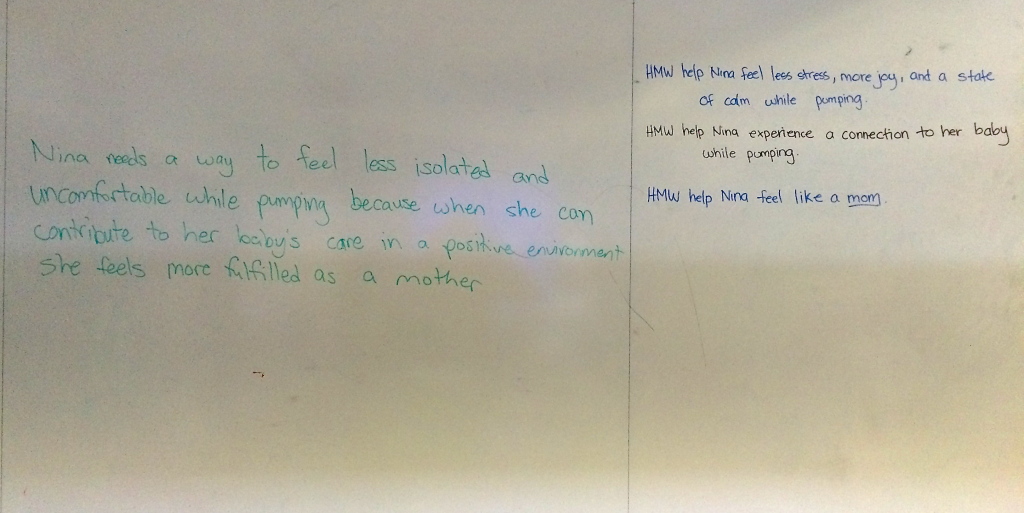 Nina needs a way to feel less isolated and
uncomfortable while pumping because when she can
contribute to her baby's care in a positive environment
she feels more fulfilled as a mother
HMW help Nina feel less stress, more joy, and a state
of calm while pumping.
HMW help Nina experience a connection to her baby
while pumping.
HMW help Nina feel like a mom.